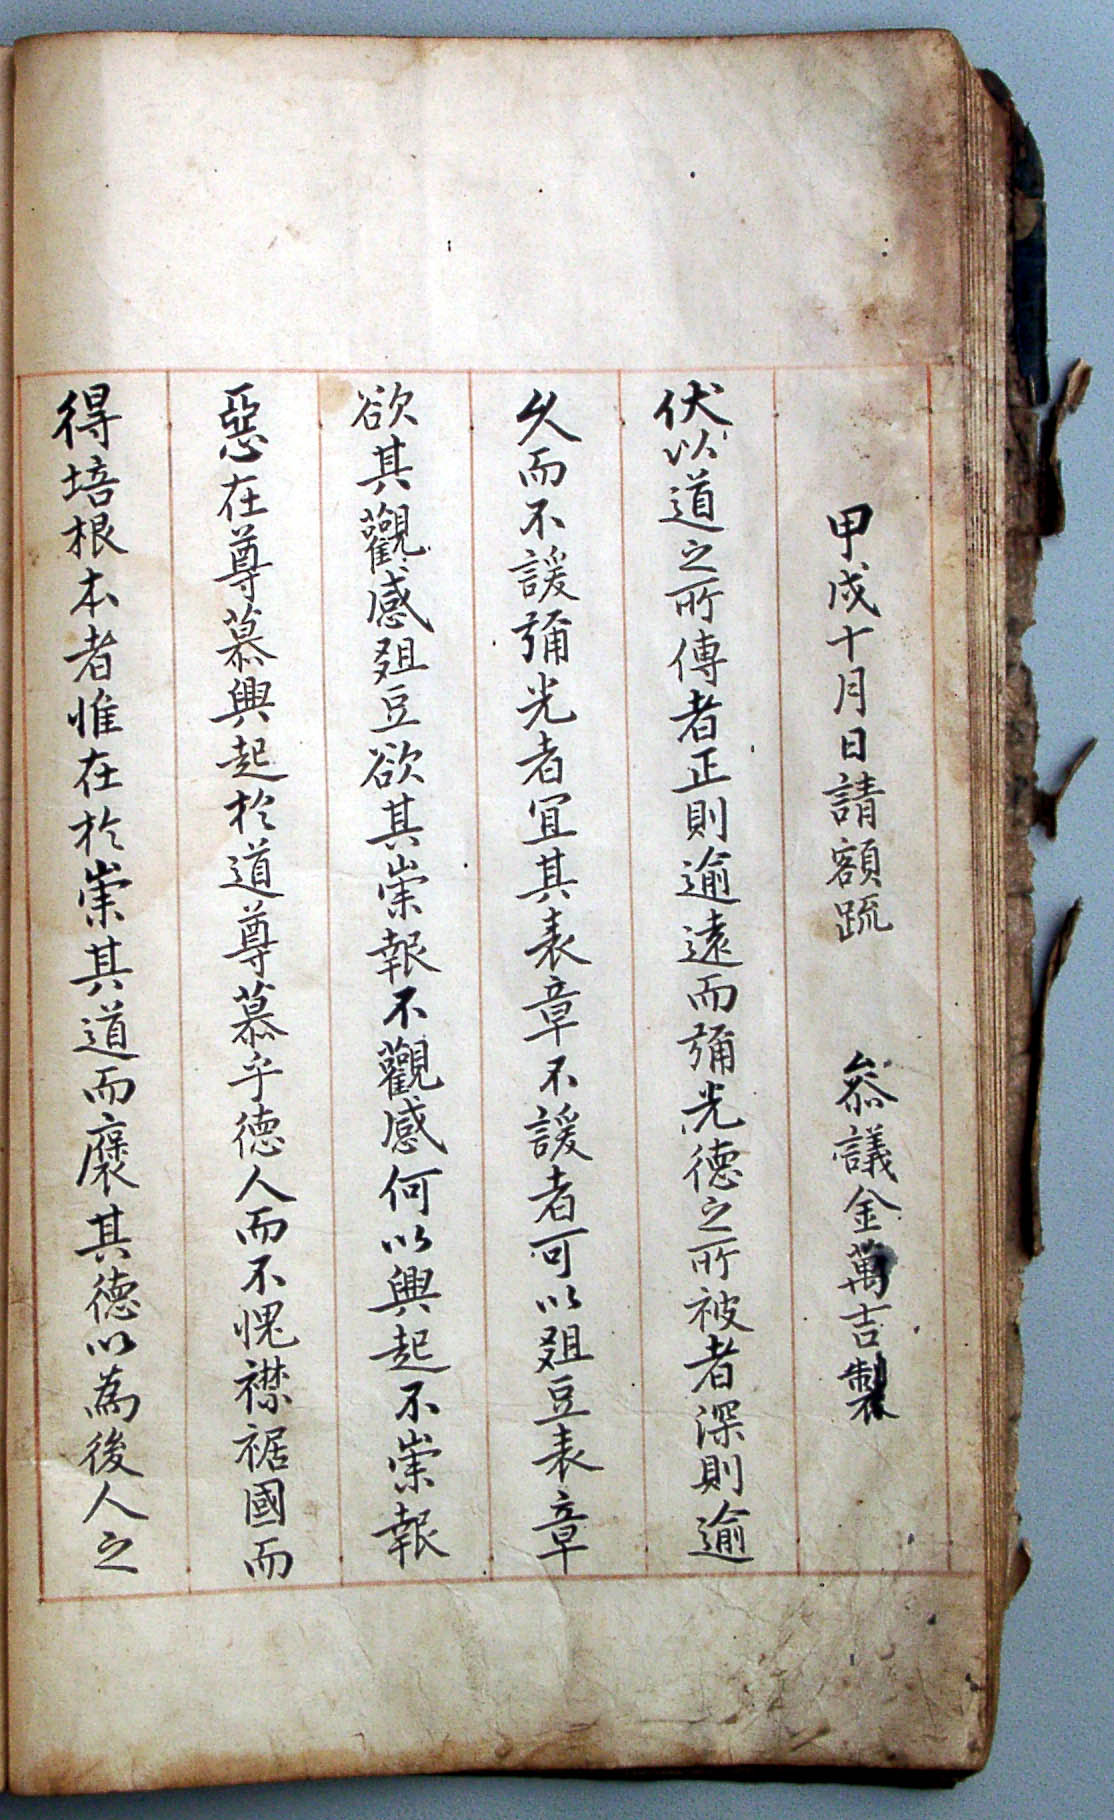 甲戌十月日請額疏 叅議金萬吉製
伏以道之所傳者正則逾遠而彌光德之所被者深則逾
久而不諼彌光者冝其表章不諼者可以爼豆表章
欲其觀感爼豆欲其崇報不觀感何以興起不崇報
惡在尊慕興起於道尊慕乎德人而不愧襟裾國而
得培根本者惟在於崇其道而褒其德以為後人之